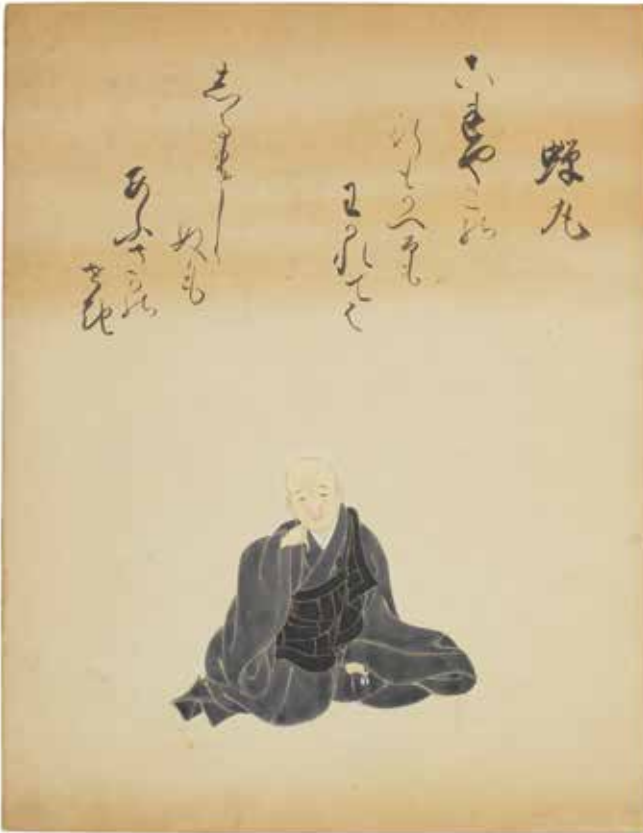 蝉丸
これやこの
行もかへるも
わかれては
しるもしら
ぬも
あふさかの
せき